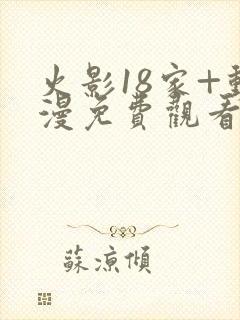 火影18家+動
漫免費觀看
蘇涼傾